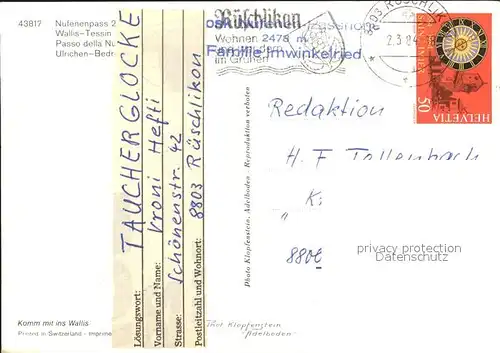 43817 Nufenenpass 2
Wallis-Tessin
Passo della Nu
Ulrichen-Bedr
Rüschlikon
Wohnen 2478 m
Familie Imwinkelried
im Grünen
8803 RÜSCHLIK
2.3.84
50
HELVETIA
Lösungswort: TAUCHERGLOCKE
Vorname und Name: Vroni Hefti
Strasse: Schönenstr. 42
Postleitzahl und Wohnort: 8803 Rüschlikon
Photo Klopfenstein, Adelboden - Reproduktion verboten
Redaktion
H. F. Tollenbach
"K:
"
8802
privacy protection
Datenschutz
Komm mit ins Wallis
Printed in Switzerland - Imprime
Phot Klopfenstein
Adelboden